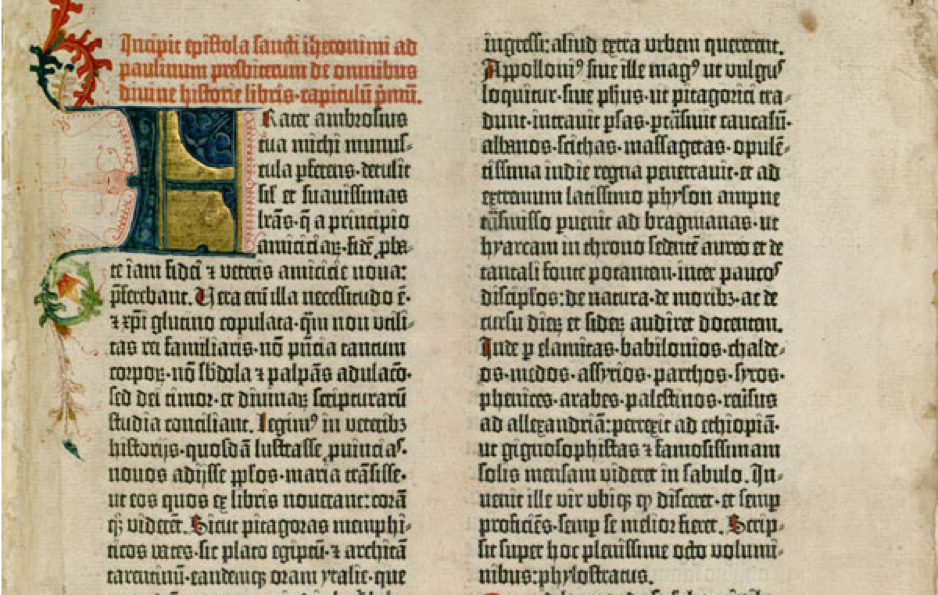 Incipit epistola sancti iheronimi ad
paulinum presbiterum de omnibus
divine historie libris·capitulū p̄mū.
FRater ambrosius
tua michi munus-
cula pferens·detulit
sil’ et suavissimas
lr̄as·q̄ a principio
amicicia⁊·fidē pba-
te iam fidei ⁊ veteris amicicie noua:
pferebant. Uera em̄ illa necessitudo ē·
⁊ xp̄i glutino copulata·qm̄ non vtili-
tas rei familiaris·nō p̄ncia tantum
corpoꝝ·nō sb̄dola ⁊ palpās adulacō·
sed dei timor·et diuinaꝝ scripturarū
studia conciliant. legimꝰ in veteribꝫ
historijs·quosdā lustrasse ꝓuinciaˢ·
nouos adijsse pplos·maria trāsisse·
ut eos quos ex libris nouerant:corā
qꝫ viderēt. Sicut pitagoras memphi-
ticos vates·sic plato egiptū·⁊ architā
tarentinū·eandemqꝫ oram ytalie·que
ingressi:aliud extra vrbem quererent.
Appolloniꝰ siue ille magꝰ ut vulguˢ
loquitur·siue phus·ut pitagorici tra-
dunt·intrauit psas·ptrāsiuit caucasū·
albanos·scithas·massagetas·opulē-
tissima indie regna penetrauit·et ad
extremum latissimo physon ampne
trāsmisso puenit ad bragmanas·ut
hyarcam in throno sedentē aureo et de
tantali fonte potantem·inter paucoˢ
discipulos:de natura·de moribꝫ·ac de
cursu dieꝝ et sideꝝ audiret docentem.
Inde p elamitas·babilonios·chalde-
os·medos·assyrios·parthos·syros·
phenices·arabes·palestinos·reūsus
ad allexandriā:perrexit ad ethiopiā·
ut gignosophistas ⁊ famosissimam
solis mensam videret in sabulo. In-
uenit ille vir vbiqꝫ qd̓ disceret·et semp
proficiēs·semp se melior fieret. Scrip-
sit super hoc plenissime octo volumi-
nibus:phylostratus.